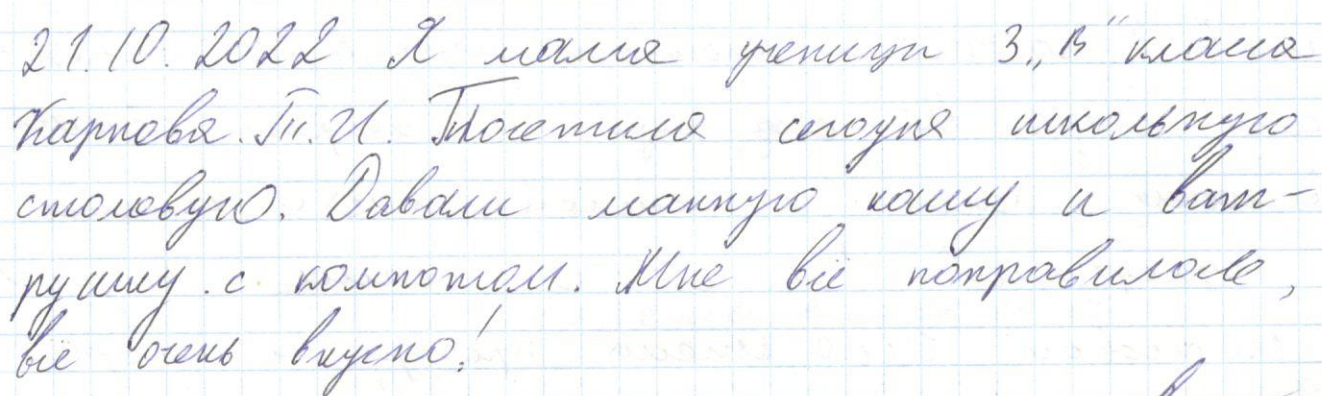 21.10.2022 Я мама ученицы 3 „В" класса
Карпова. Т.И. Посетила сегодня школьную
столовую. Давали манную кашу и ват-
рушку с компотом. Мне всё понравилось,
всё очень вкусно!